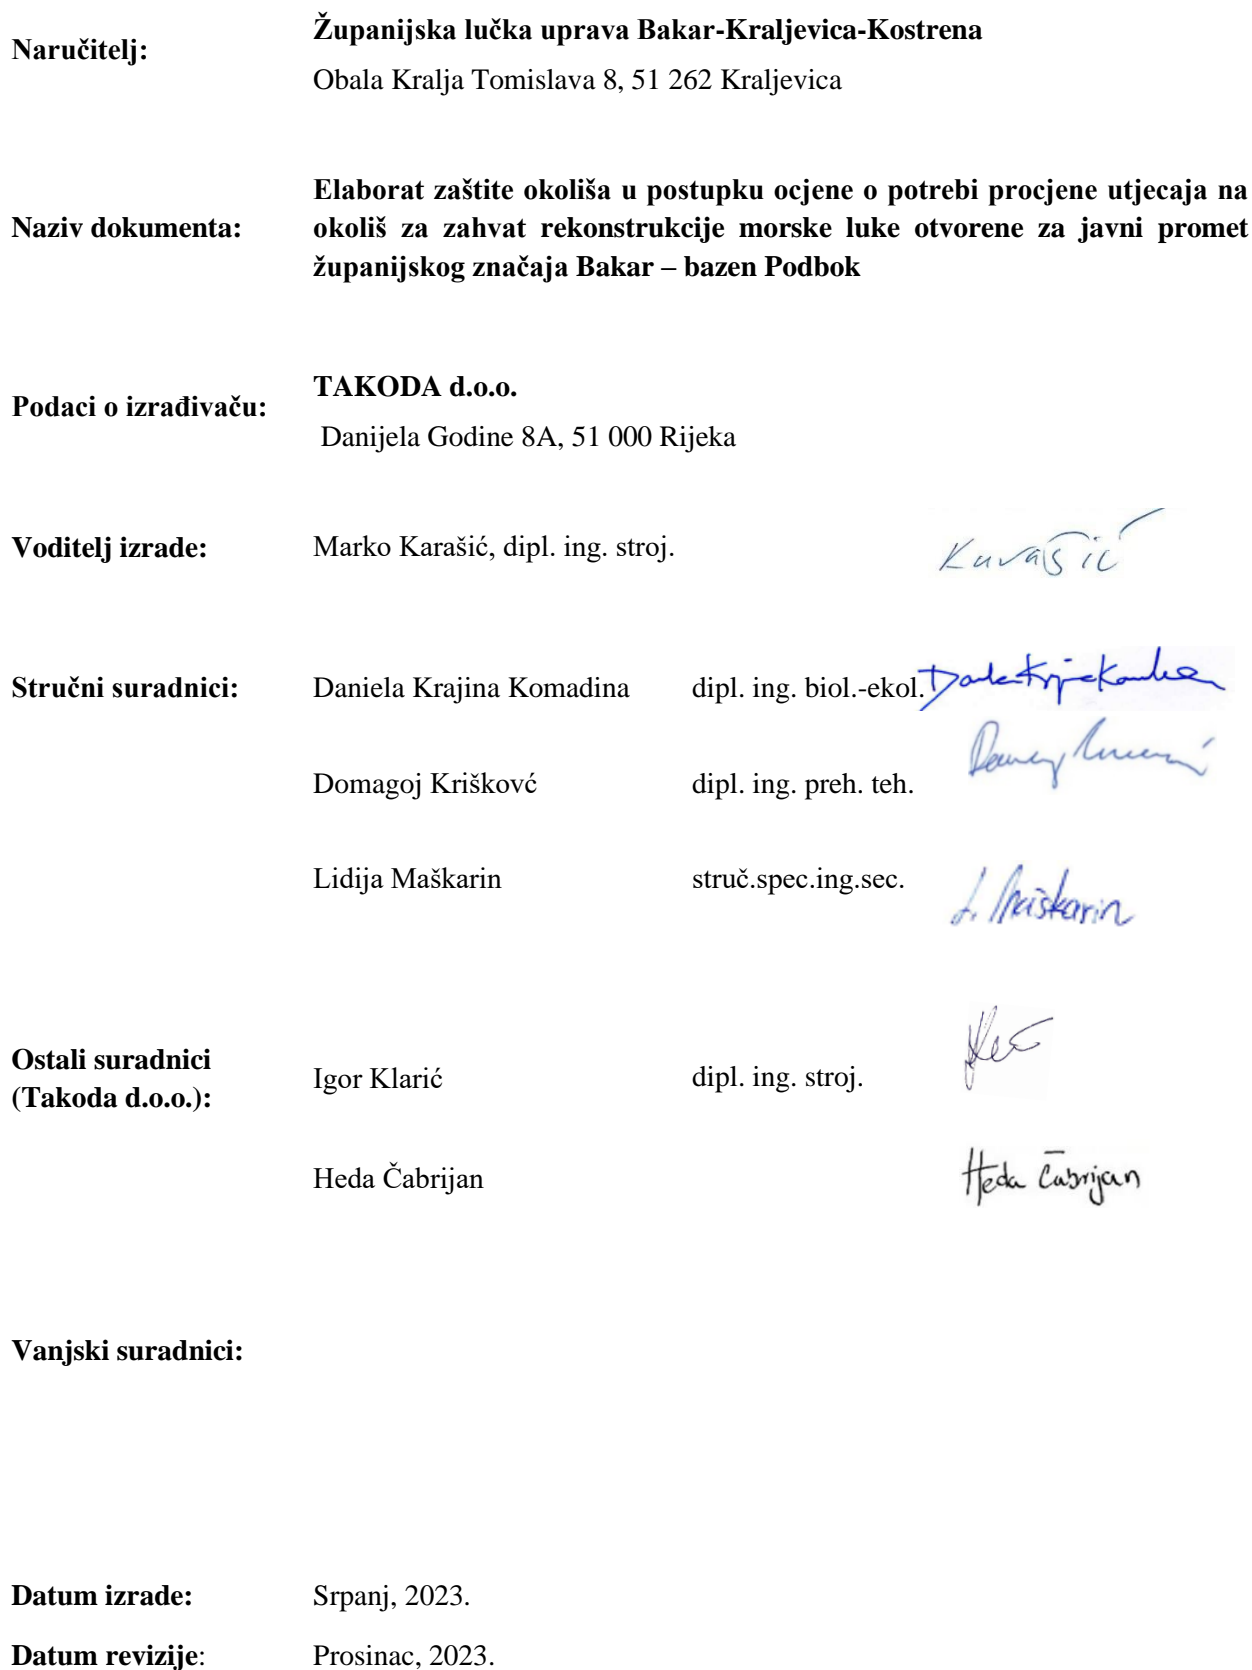 Naručitelj:
Županijska lučka uprava Bakar-Kraljevica-Kostrena
Obala Kralja Tomislava 8, 51 262 Kraljevica
Naziv dokumenta:
Elaborat zaštite okoliša u postupku ocjene o potrebi procjene utjecaja na
okoliš za zahvat rekonstrukcije morske luke otvorene za javni promet
županijskog značaja Bakar – bazen Podbok
Podaci o izrađivaču:
TAKODA d.o.o.
Danijela Godine 8A, 51 000 Rijeka
Voditelj izrade: Marko Karašić, dipl. ing. stroj. Karašić
Stručni suradnici: Daniela Krajina Komadina dipl. ing. biol.-ekol.
Domagoj Kriškovć dipl. ing. preh. teh.
Lidija Maškarin struč.spec.ing.sec. L. Maškarin
Ostali suradnici
(Takoda d.o.o.):
Igor Klarić dipl. ing. stroj.
Heda Čabrijan Heda Čabrijan
Vanjski suradnici:
Datum izrade: Srpanj, 2023.
Datum revizije: Prosinac, 2023.